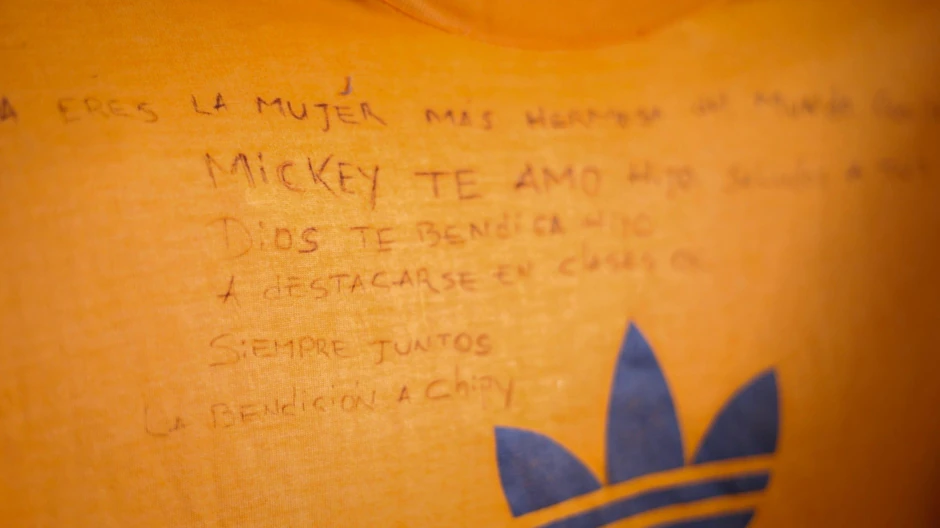 A ERES LA MUJER MÁS HERMOSA DEL MUNDO
MICKEY TE AMO HIJO
DIOS TE BENDIGA HIJO
A DESTACARSE EN CLASES
SIEMPRE JUNTOS
LA BENDICIÓN A Chipy